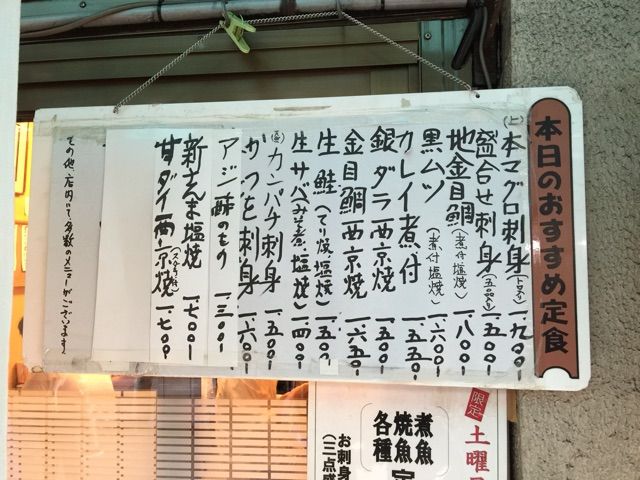 本日のおすすめ定食
(上)本マグロ刺身(トロ入り) 一.九〇〇
盛合せ刺身(五点盛り) 一.五〇〇
地金目鯛(煮付 塩焼) 一.八〇〇
黒ムツ(煮付 塩焼) 一.六〇〇
カレイ煮付 一.五五〇
銀ダラ西京焼 一.五〇〇
金目鯛西京焼 一.六五〇
生鮭(てり焼 塩焼) 一.五〇〇
生サバ(みそ煮 塩焼) 一.四〇〇
カンパチ刺身 一.六〇〇
かつを刺身 一.六〇〇
アジ酢のもの 一.三〇〇
新さんま塩焼 一.七〇〇
甘ダイ西京焼 一.七〇〇
その他、店内にて多数のメニューがございます
限定
土曜
煮魚
焼魚
各種
定
お刺身
(三点盛